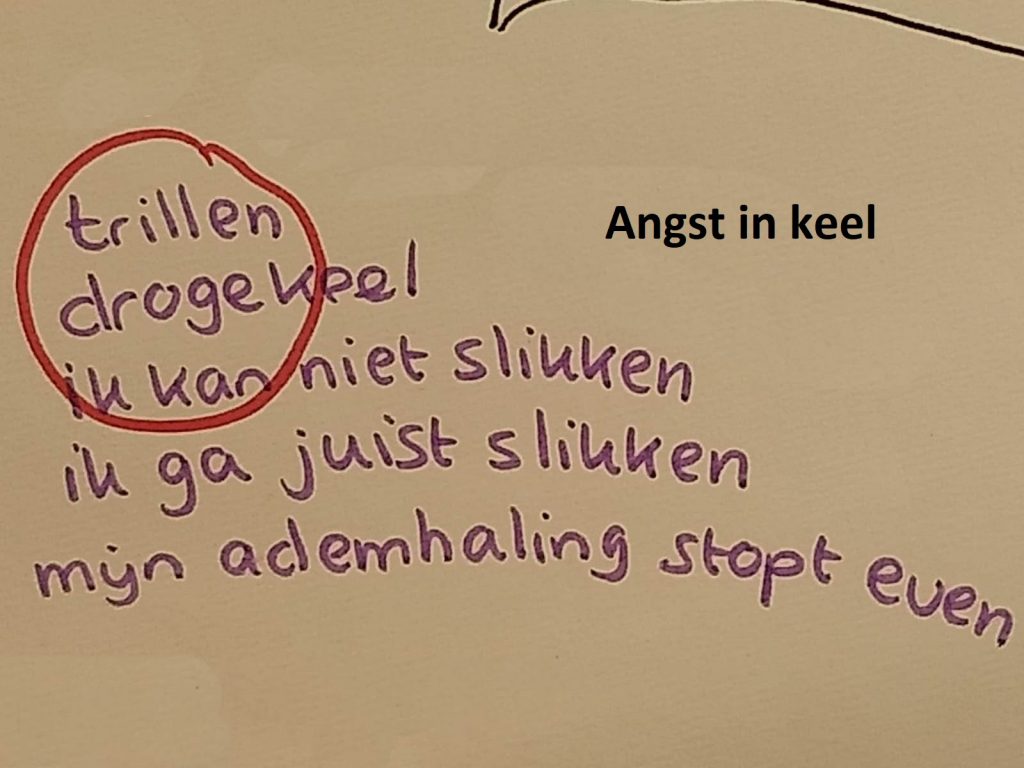 Angst in keel
trillen
droge keel
ik kan niet slikken
ik ga juist slikken
mijn ademhaling stopt even